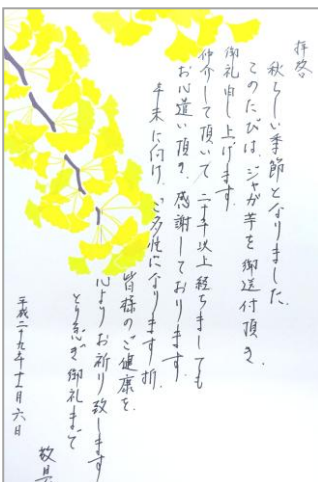 拝啓
秋らしい季節となりました。
このたびは、ジャガ芋を御送付頂き、
御礼申し上げます。
仲介して頂いて二十年以上経ちましても
お心遣い頂き、感謝しております。
年末に向け、ご多忙になります折、
皆様のご健康を
心よりお祈り致します
とり急ぎ御礼まで
敬具
平成二十九年十一月六日